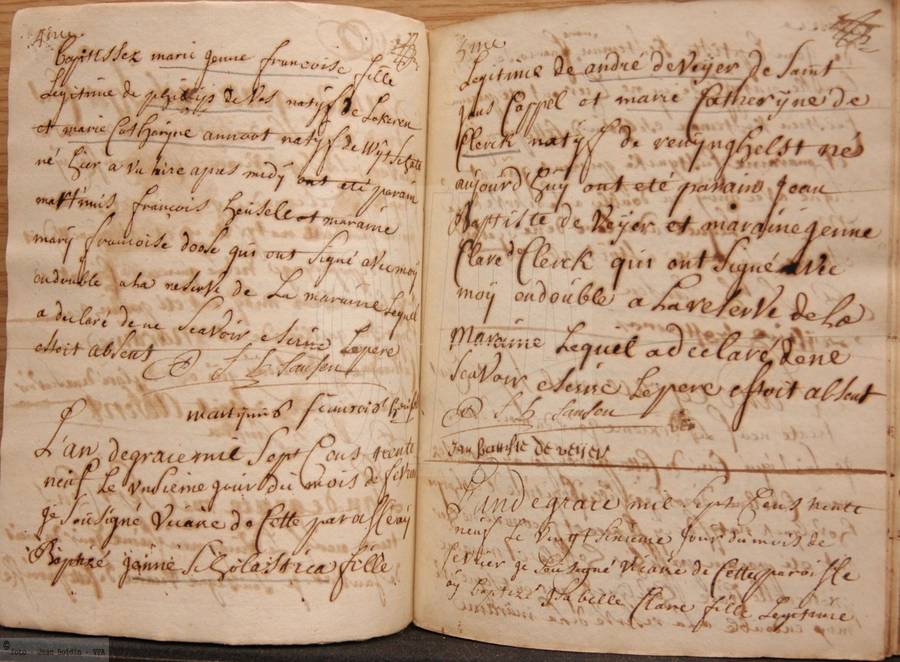 4me
baptissez marie jenne francoise fille
Legitime de philip de Vos natyf de Lokeren
et marie Catharyne annoot natyf de Wytschate
né hier a Six hire apres midy ont eté parain
martinus francois heusele et maraine
mary francoise doose qui ont Signé avec moy
en double a la reserve de La maraine Lequel
a declaré de ne Scavoir escrire Le pere
estoit absent
martynus francois
L'an de grace mil Sept Cens trente
neuf Le unsieme jour du mois de fevrier
je Sousigné Vicaire de Cette paroisse ay
Baptizé jenne Scholastica fille
5me
Legitime de andré de Veyer de Saint
jans Cappel et marie Catheryne de
Clerck natyf de renynghelst né
aujourd huy ont eté parain jean
Baptiste de Veyer et maraine jenne
Clare d Clerck qui ont Signé avec
moy en double a La reserve de La
maraine Lequel a declaré de ne
Scavoir escrire Le pere estoit absent
Jan Baptiste de veyer
L'an de grace mil Sept Cens trente
neuf Le vingt Sixieme jour du mois de
fevrier je Sousigné Vicaire de Cette paroisse
ay baptizé Isabelle Clare fille Legitime
© Foto - Juan Boidin - VVA